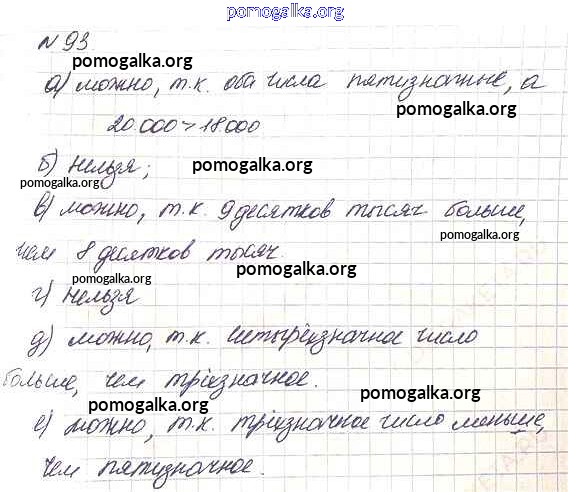 pomogalka.org
N 93
pomogalka.org
а) можно, т.к. оба числа пятизначные, а
pomogalka.org
20.000 > 18.000
б) нельзя; pomogalka.org
pomogalka.org
в) можно, т.к. 9 десятков тысяч больше,
pomogalka.org
чем 8 десятков тысяч.
pomogalka.org pomogalka.org
г) нельзя
д) можно, т.к. четырёхзначное число
больше, чем трёхзначное. pomogalka.org
pomogalka.org
е) можно, т.к. трёхзначное число меньше,
pomogalka.org
чем пятизначное.